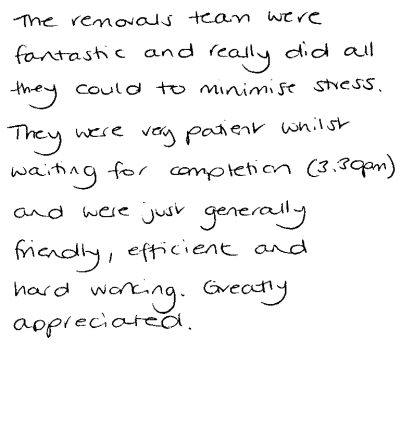 The removals team were
fantastic and really did all
they could to minimise stress.
They were very patient whilst
waiting for completion (3.30pm)
and were just generally
friendly, efficient and
hard working. Greatly
appreciated.